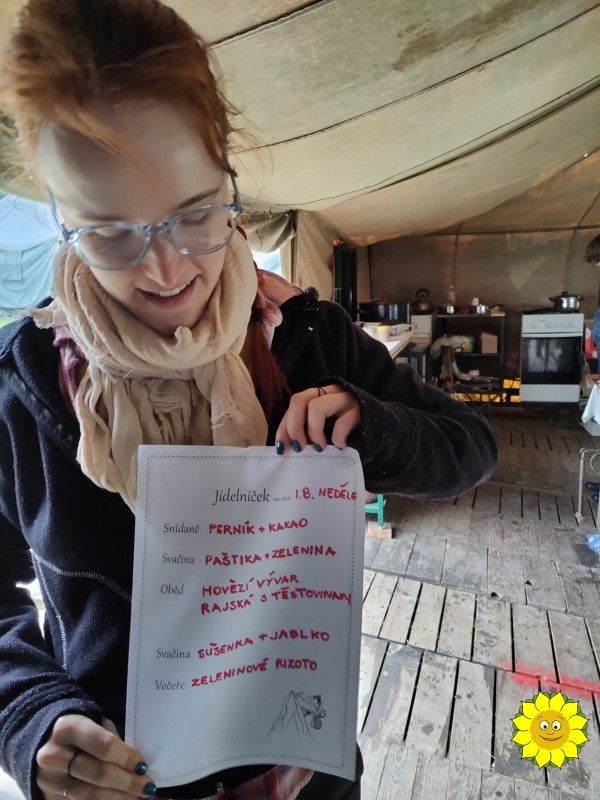 Jídelníček na den 1.8. NEDĚLE
Snídaně PERNÍK + KAKAO
Svačina PAŠTIKA + ZELENINA
Oběd HOVĚZÍ VÝVAR
RAJSKÁ S TĚSTOVINAMI
Svačina SUŠENKA + JABLKO
Večeře ZELENINOVÉ RIZOTO